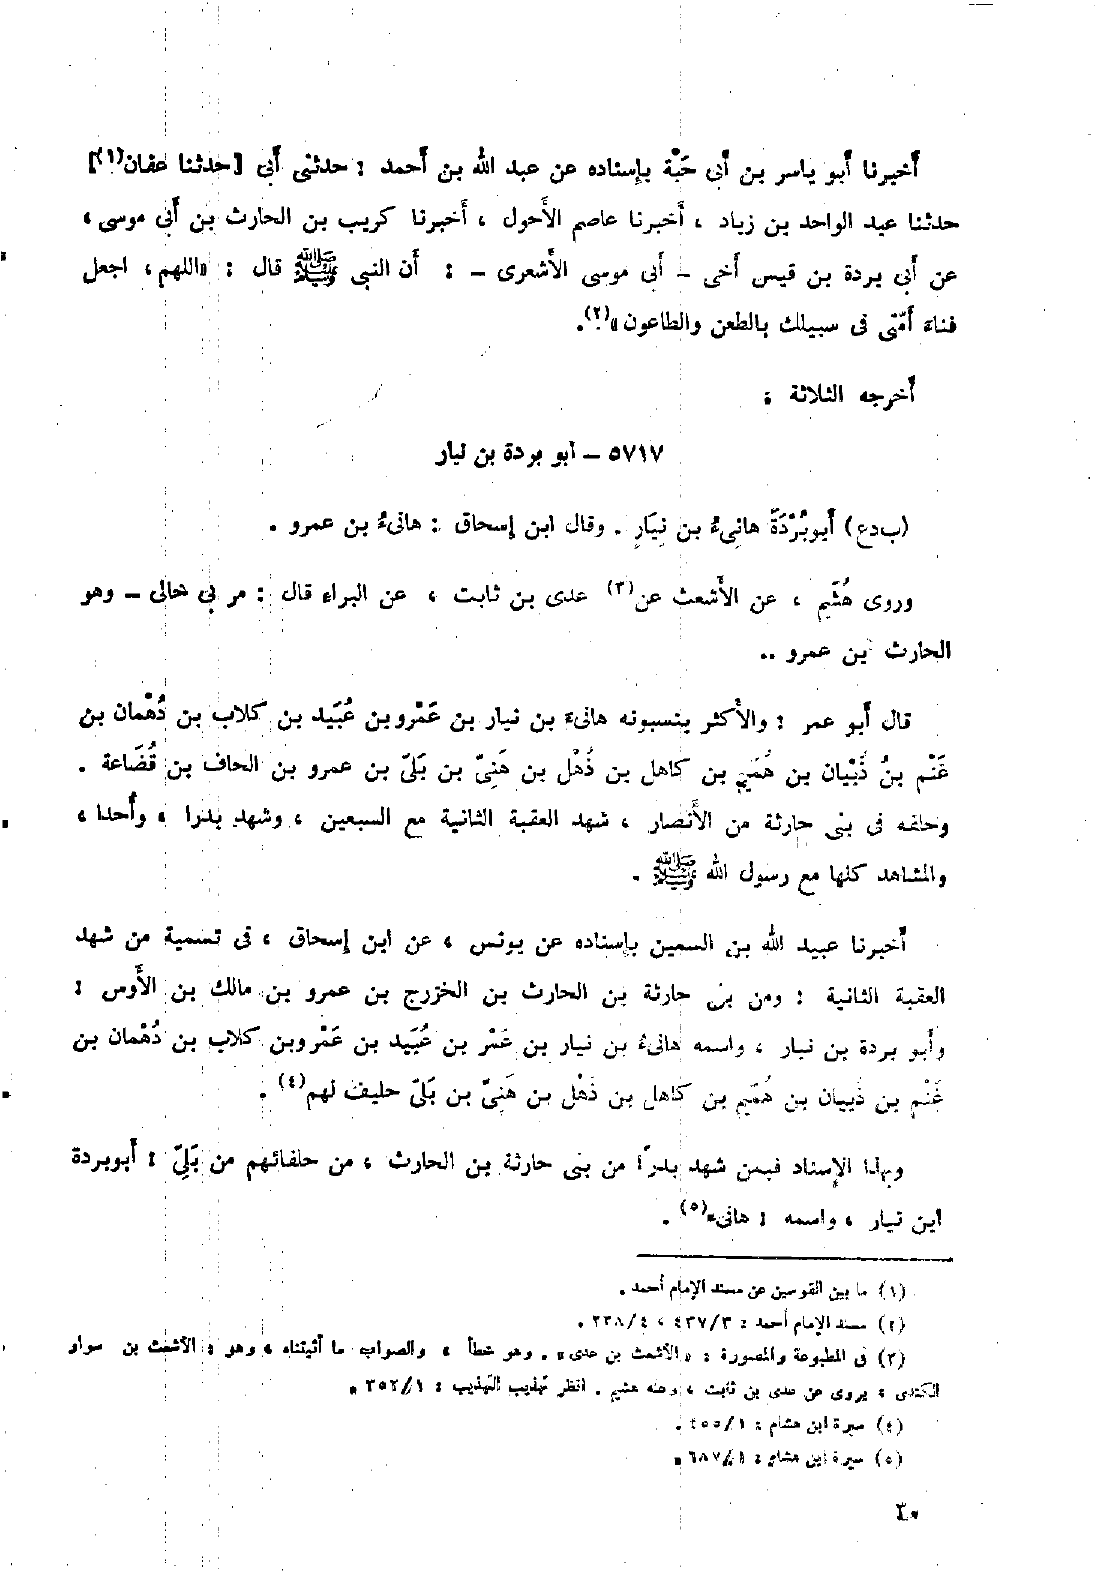 أخبرنا أبو ياسر بن أبى حَبَّة بإسناده عن عبد الله بن أحمد : حدثنى أبى [حدثنا عفان(١)]
حدثنا عبد الواحد بن زياد ، أخبرنا عاصم الأحول ، أخبرنا كريب بن الحارث بن أبى موسى ،
عن أبى بردة بن قيس أخى – أبى موسى الأشعرى – : أن النبى ﷺ قال : «اللهم ، اجعل
فناء أمّتى فى سبيلك بالطعن والطاعون »(٢).
أخرجه الثلاثة :
٥٧١٧ – أبو بردة بن نيار
(ب د ع) أبو بُرْدَةَ هانِىءُ بن نِيَارٍ . وقال ابن إسحاق : هانىءُ بن عمرو .
وروى هُشَيم ، عن الأشعث عن(٣) عدى بن ثابت ، عن البراء قال : مر بى خالى – وهو
الحارث بن عمرو ..
قال أبو عمر : والأكثر ينسبونه هانىء بن نيار بن عَمْرو بن عُبَيد بن كلاب بن دُهْمان بن
غَنْم بنُ ذَبْيان بن هُمَيم بن كاهل بن ذُهْل بن هَنِىّ بن بَلىّ بن عمرو بن الحاف بن قُضَاعة .
وحلفه فى بنى حارثة من الأنصار ، شهد العقبة الثانية مع السبعين ، وشهد بدرا ، وأحدا ،
والمشاهد كلها مع رسول الله ﷺ .
أخبرنا عبيد الله بن السمين بإسناده عن يونس ، عن ابن إسحاق ، فى تسمية من شهد
العقبة الثانية : ومن بنى حارثة بن الحارث بن الخزرج بن عمرو بن مالك بن الأوس :
وأبو بردة بن نيار ، واسمه هانىءُ بن نيار بن عَمْر بن عُبَيد بن عَمْرو بن كلاب بن دُهْمان بن
غَنْم بن ذبيان بن هُمَيم بن كاهل بن ذهْل بن هَنِىّ بن بَلىّ حليف لهم(٤) .
وبهذا الإسناد فيمن شهد بدرًا من بنى حارثة بن الحارث ، من حلفائهم من بَلِىّ : أبو بردة
ابن نيار ، واسمه : هانىء(٥) .
(١) ما بين القوسين عن مسند الإمام أحمد .
(٢) مسند الإمام أحمد : ٤٣٧/٣ ، ٢٣٨/٤ .
(٣) فى المطبوعة والمصورة : « الأشعث بن عدى » . وهو خطأ ، والصواب ما أثبتناه ، وهو : الأشعث بن سوار
الكندى ، يروى عن عدى بن ثابت ، وعنه هشيم . انظر تهذيب التهذيب : ٣٥٢/١ .
(٤) سيرة ابن هشام : ٤٥٥/١ .
(٥) سيرة ابن هشام : ٦٨٧/١ .
٣٠